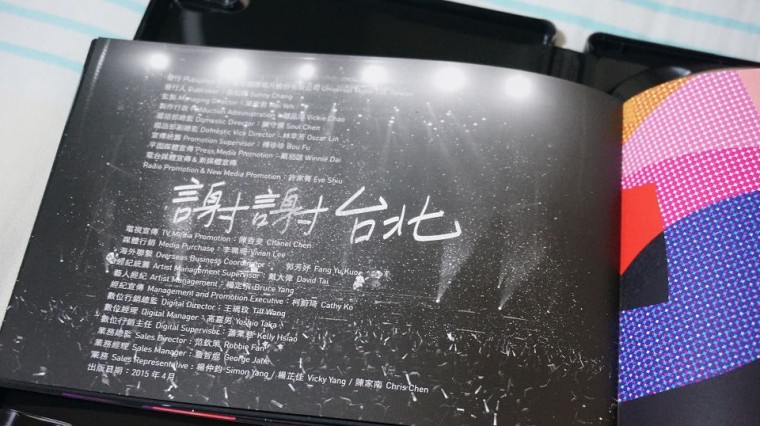 發行 Publisher
發行人 Publisher: Sunny Chang
總監 Managing Director:
製作行政 Production Administration: Vickie Chao
國語部總監 Domestic Director: Soul Chen
國語部副總監 Domestic Vice Director: 林聿芳 Oscar Lin
宣傳統籌 Promotion Supervisor: 傅珍珍 Bou Fu
平面媒體宣傳 Press Media Promotion: Winnie Dai
電台媒體宣傳 & 新媒體宣傳
Radio Promotion & New Media Promotion: 許家菁 Eve Shiu
謝謝台北
電視宣傳 TV Media Promotion: Chanel Chen
媒體行銷 Media Purchase: Vivian Lee
海外聯繫 Overseas Business Coordinator: 郭芳妤 Fang Yu Kuo
經紀統籌 Artist Management Supervisor: 戴大偉 David Tai
藝人經紀 Artist Management: Bruce Yang
經紀宣傳 Management and Promotion Executive: Cathy Ko
數位行銷總監 Digital Director: 王瑞玟 Till Wang
數位經理 Digital Manager: 高嘉男 Yoshio Taka
數位行銷主任 Digital Supervisor: Kelly Hsiao
業務總監 Sales Director: 范欽策 Robbie Fan
業務經理 Sales Manager: George Jane
業務 Sales Representative: 楊仲鈞 Simon Yang / 楊芷任 Vicky Yang / 陳家南 Chris Chen
出版日期:2015年4月